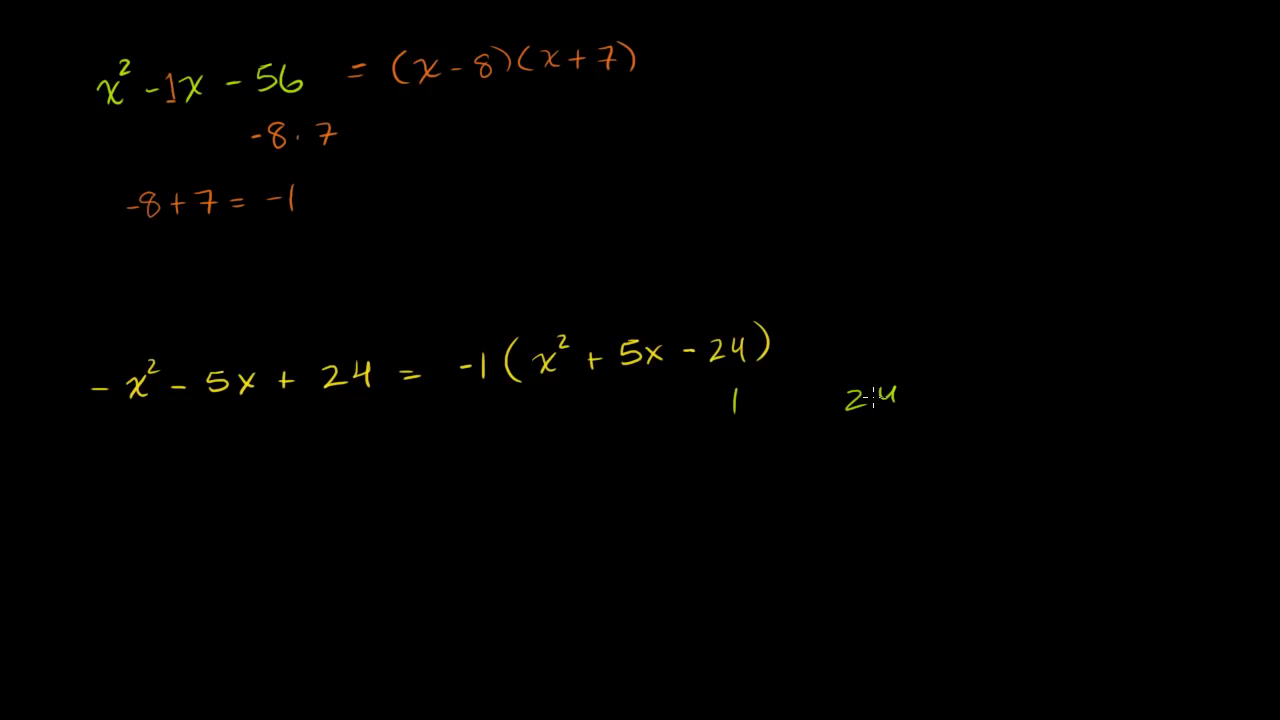 x² - 1x - 56 = (x - 8)(x + 7)
-8 · 7
-8 + 7 = -1
-x² - 5x + 24 = -1(x² + 5x - 24)
1 24